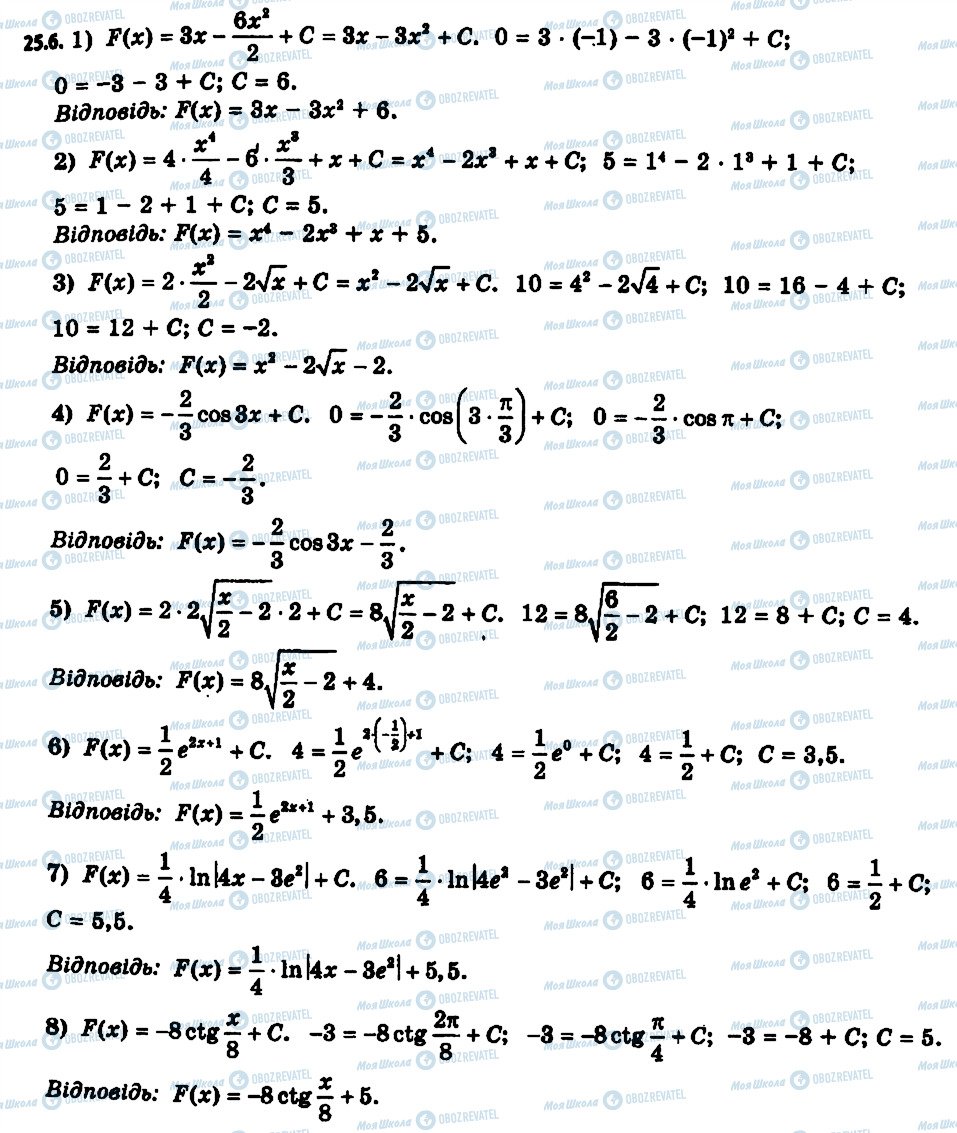 25.6. 1) F(x) = 3x − 6x²/2 + C = 3x − 3x² + C. 0 = 3 · (−1) − 3 · (−1)² + C;
0 = −3 − 3 + C; C = 6.
Відповідь: F(x) = 3x − 3x² + 6.
2) F(x) = 4 · x⁴/4 − 6 · x³/3 + x + C = x⁴ − 2x³ + x + C; 5 = 1⁴ − 2 · 1³ + 1 + C;
5 = 1 − 2 + 1 + C; C = 5.
Відповідь: F(x) = x⁴ − 2x³ + x + 5.
3) F(x) = 2 · x²/2 − 2√x + C = x² − 2√x + C. 10 = 4² − 2√4 + C; 10 = 16 − 4 + C;
10 = 12 + C; C = −2.
Відповідь: F(x) = x² − 2√x − 2.
4) F(x) = −2/3 cos 3x + C. 0 = −2/3 · cos(3 · π/3) + C; 0 = −2/3 · cos π + C;
0 = 2/3 + C; C = −2/3.
Відповідь: F(x) = −2/3 cos 3x − 2/3.
5) F(x) = 2 · 2√(x/2 − 2) · 2 + C = 8√(x/2 − 2) + C. 12 = 8√(6/2 − 2) + C; 12 = 8 + C; C = 4.
Відповідь: F(x) = 8√(x/2 − 2) + 4.
6) F(x) = 1/2 e^(2x+1) + C. 4 = 1/2 e^(2·(−1/2)+1) + C; 4 = 1/2 e⁰ + C; 4 = 1/2 + C; C = 3,5.
Відповідь: F(x) = 1/2 e^(2x+1) + 3,5.
7) F(x) = 1/4 · ln|4x − 3e²| + C. 6 = 1/4 · ln|4e² − 3e²| + C; 6 = 1/4 · ln e² + C; 6 = 1/2 + C;
C = 5,5.
Відповідь: F(x) = 1/4 · ln|4x − 3e²| + 5,5.
8) F(x) = −8 ctg x/8 + C. −3 = −8 ctg 2π/8 + C; −3 = −8 ctg π/4 + C; −3 = −8 + C; C = 5.
Відповідь: F(x) = −8 ctg x/8 + 5.
Моя Школа OBOZREVATEL